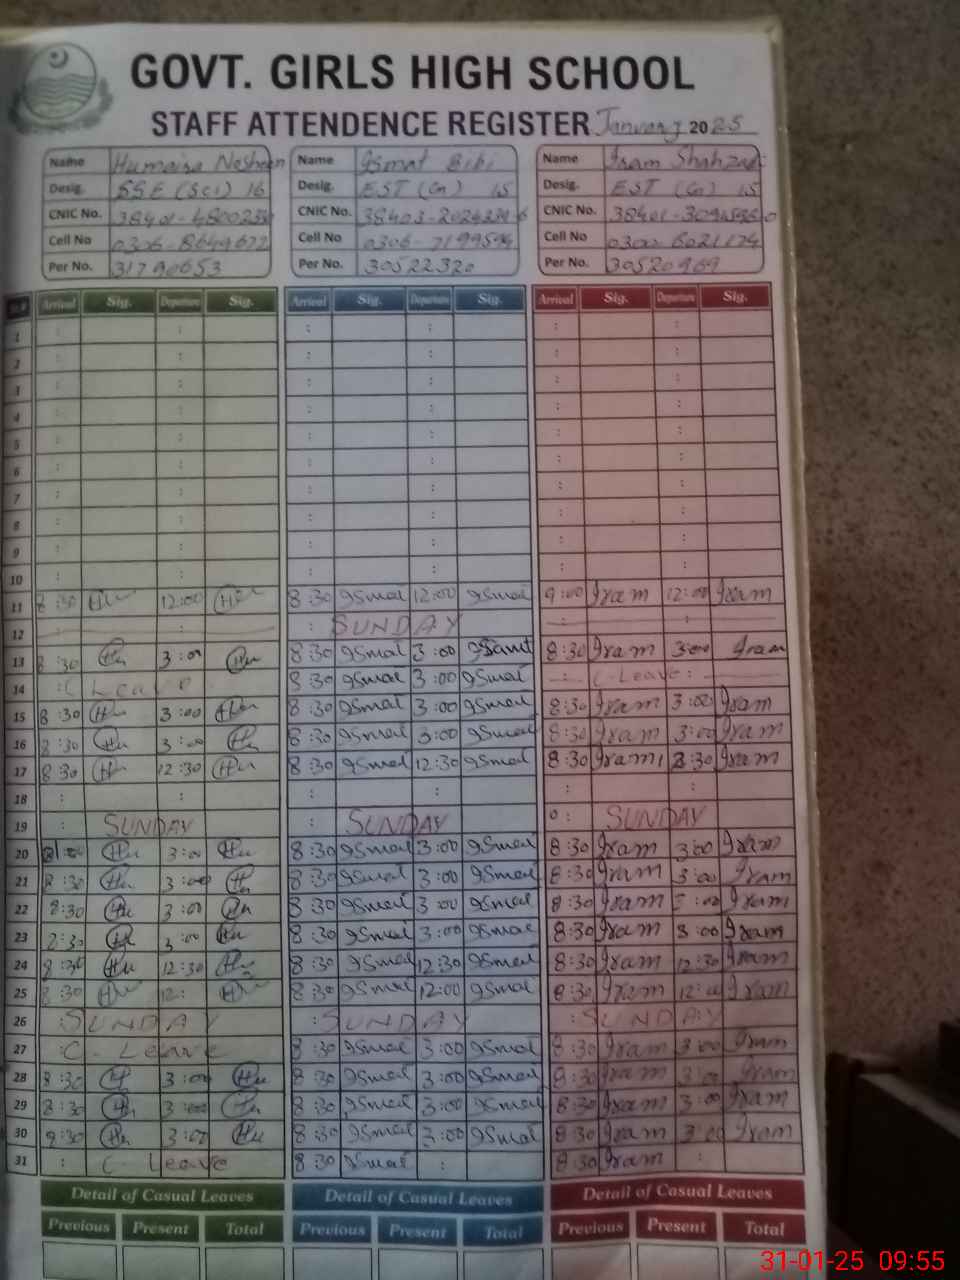 GOVT. GIRLS HIGH SCHOOL
STAFF ATTENDENCE REGISTER January 2025
Name Humaira Nosheen Name Ismat Bibi Name Iram Shahzadi
Desig. SSE (Sci) 16 Desig. EST (Gn) 15 Desig. EST (Gn) 15
CNIC No. CNIC No. CNIC No.
Cell No Cell No Cell No
Per No. 31790653 Per No. 30522320 Per No. 30520969
Arrival Sig. Departure Sig. Arrival Sig. Departure Sig. Arrival Sig. Departure Sig.
1 : : : : : :
2 : : : : : :
3 : : : : : :
4 : : : : : :
5 : : : : : :
6 : : : : : :
7 : : : : : :
8 : : : : : :
9 : : : : : :
10 : : : : : :
11 8:30 Hu 12:00 Hu 8:30 Ismat 12:00 Ismat 9:00 Iram 12:00 Iram
12 : : : SUNDAY : :
13 8:30 Hu 3:00 Hu 8:30 Ismat 3:00 Ismat 8:30 Iram 3:00 Iram
14 : C Leave 8:30 Ismat 3:00 Ismat : C-Leave :
15 8:30 Hu 3:00 Hu 8:30 Ismat 3:00 Ismat 8:30 Iram 3:00 Iram
16 8:30 Hu 3:00 Hu 8:30 Ismat 3:00 Ismat 8:30 Iram 3:00 Iram
17 8:30 Hu 12:30 Hu 8:30 Ismat 12:30 Ismat 8:30 Iram Iram
18 : : : : : :
19 : SUNDAY : SUNDAY : SUNDAY
20 Hu 3:00 Hu 8:30 Ismat 3:00 Ismat 8:30 Iram 3:00 Iram
21 8:30 Hu 3:00 Hu 8:30 Ismat 3:00 Ismat 8:30 Iram 3:00 Iram
22 8:30 Hu 3:00 Hu 8:30 Ismat 3:00 Ismat 8:30 Iram :00 Iram
23 8:30 Hu 3:00 Hu 8:30 Ismat 3:00 Ismat 8:30 Iram 3:00 Iram
24 8:30 Hu 12:30 Hu 8:30 Ismat 12:30 Ismat 8:30 Iram 12:30 Iram
25 8:30 Hu 12: Hu 8:30 Ismat 12:00 Ismat 8:30 Iram 12:00 Iram
26 : SUNDAY : SUNDAY : SUNDAY
27 : C - Leave 8:30 Ismat 3:00 Ismat 8:30 Iram 3:00 Iram
28 8:30 Hu 3:00 Hu 8:30 Ismat 3:00 Ismat 8:30 Iram 3:00 Iram
29 8:30 Hu 3:00 Hu 8:30 Ismat 3:00 Ismat 8:30 Iram 3:00 Iram
30 Hu 3:00 Hu 8:30 Ismat 3:00 Ismat 8:30 Iram 3:00 Iram
31 : C - Leave 8:30 Ismat : 8:30 Iram :
Detail of Casual Leaves Detail of Casual Leaves Detail of Casual Leaves
Previous Present Total Previous Present Total Previous Present Total
31-01-25 09:55